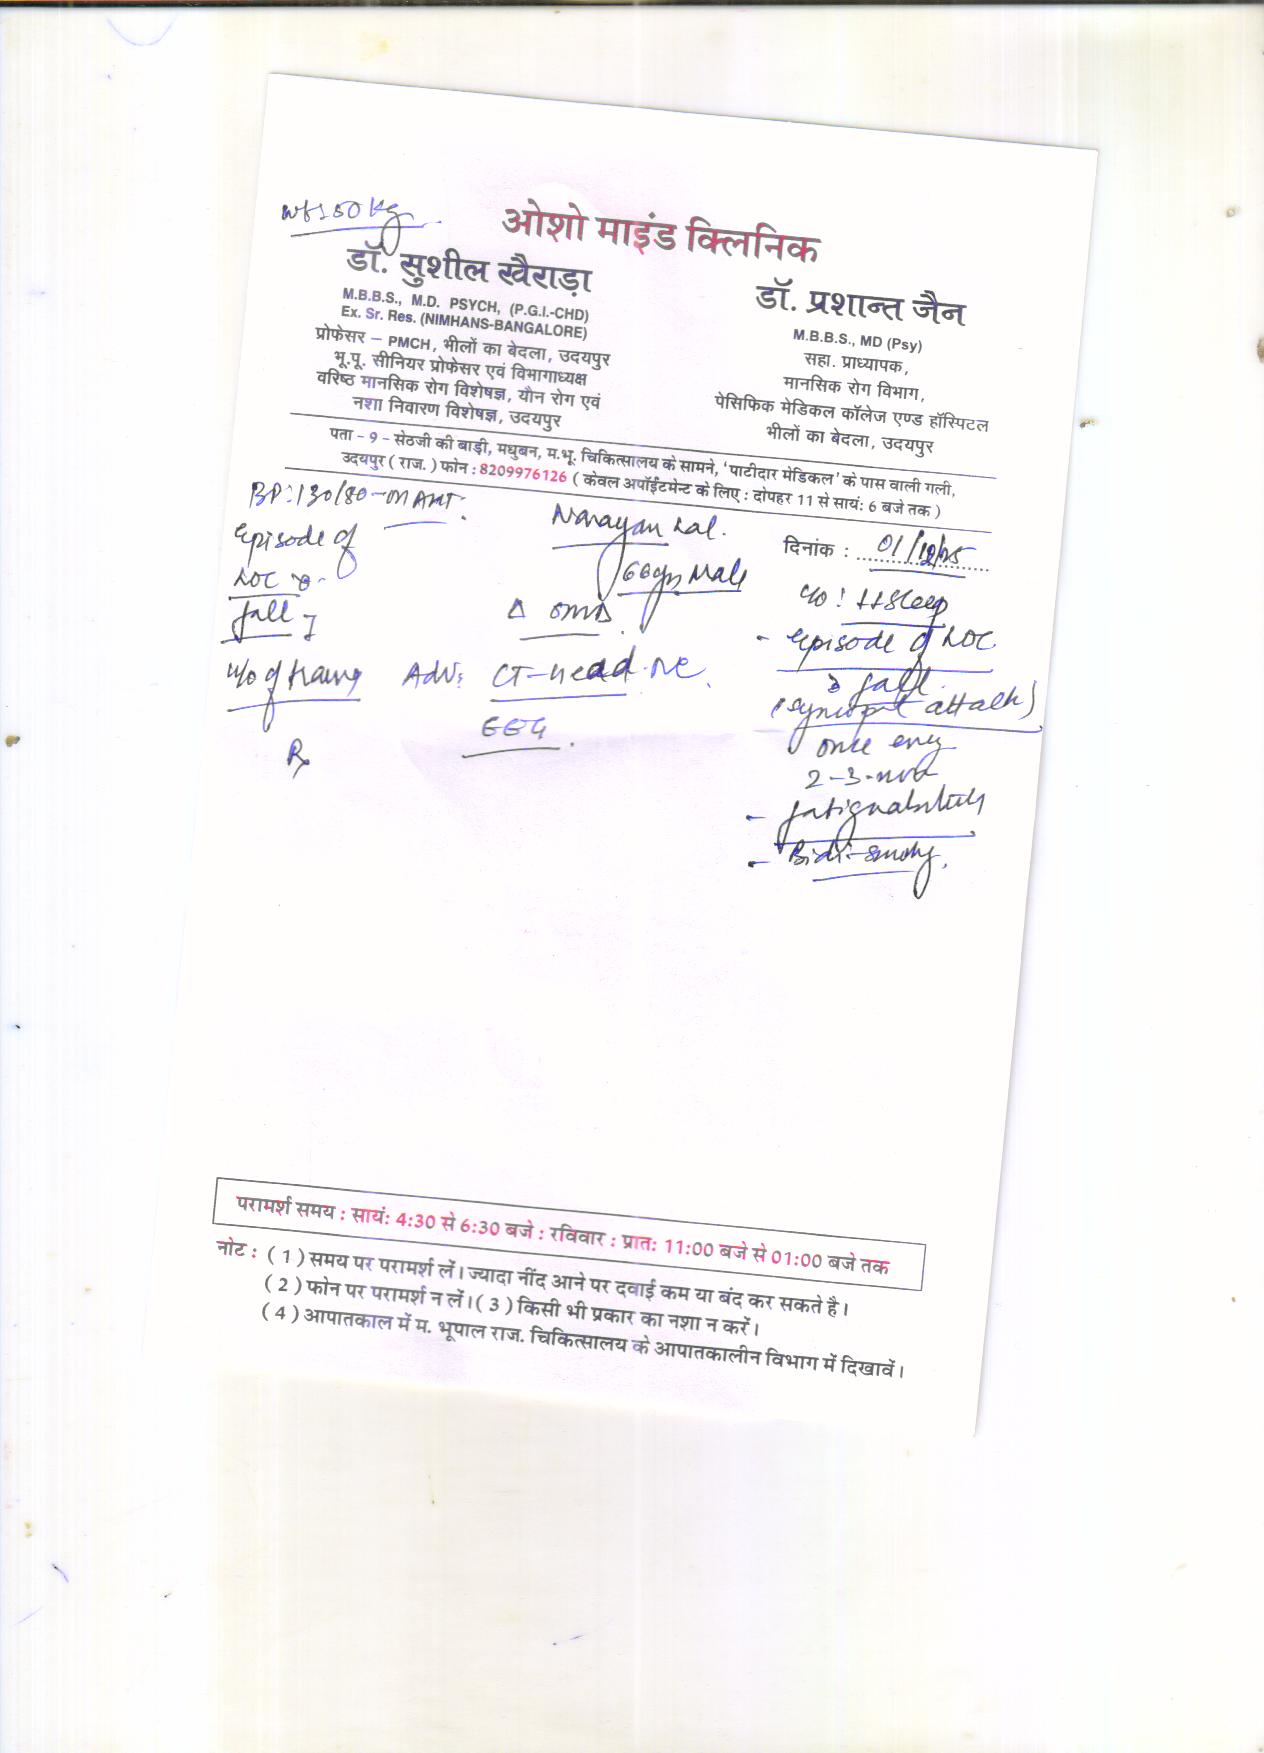 wt 50 kg
ओशो माइंड क्लिनिक
डॉ. सुशील खैराड़ा
M.B.B.S., M.D. PSYCH, (P.G.I.-CHD)
Ex. Sr. Res. (NIMHANS-BANGALORE)
प्रोफेसर – PMCH, भीलों का बेदला, उदयपुर
भू.पू. सीनियर प्रोफेसर एवं विभागाध्यक्ष
वरिष्ठ मानसिक रोग विशेषज्ञ, यौन रोग एवं
नशा निवारण विशेषज्ञ, उदयपुर
डॉ. प्रशान्त जैन
M.B.B.S., MD (Psy)
सहा. प्राध्यापक,
मानसिक रोग विभाग,
पेसिफिक मेडिकल कॉलेज एण्ड हॉस्पिटल
भीलों का बेदला, उदयपुर
पता - 9 - सेठजी की बाड़ी, मधुबन, म.भू. चिकित्सालय के सामने, 'पाटीदार मेडिकल' के पास वाली गली,
उदयपुर ( राज. ) फोन : 8209976126 ( केवल अपॉईंटमेन्ट के लिए : दोपहर 11 से सायं: 6 बजे तक )
BP: 130/80
Episode of
LOC
fall
Narayan Lal.
66 yrs Male
Adv: CT-head
EEG
Rx
दिनांक : 01/12/25
c/o: ↓↓ Sleep
- Episode of LOC
fall.
(Syncopal attack)
once every
2-3
- fatigability
- Bidi-
परामर्श समय : सायं: 4:30 से 6:30 बजे : रविवार : प्रात: 11:00 बजे से 01:00 बजे तक
नोट : ( 1 ) समय पर परामर्श लें। ज्यादा नींद आने पर दवाई कम या बंद कर सकते है।
( 2 ) फोन पर परामर्श न लें। ( 3 ) किसी भी प्रकार का नशा न करें।
( 4 ) आपातकाल में म. भूपाल राज. चिकित्सालय के आपातकालीन विभाग में दिखावें।